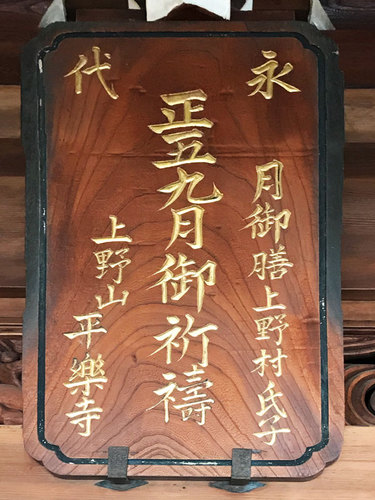 永代
月御膳上野村氏子
正五九月御祈禱
上野山平樂寺